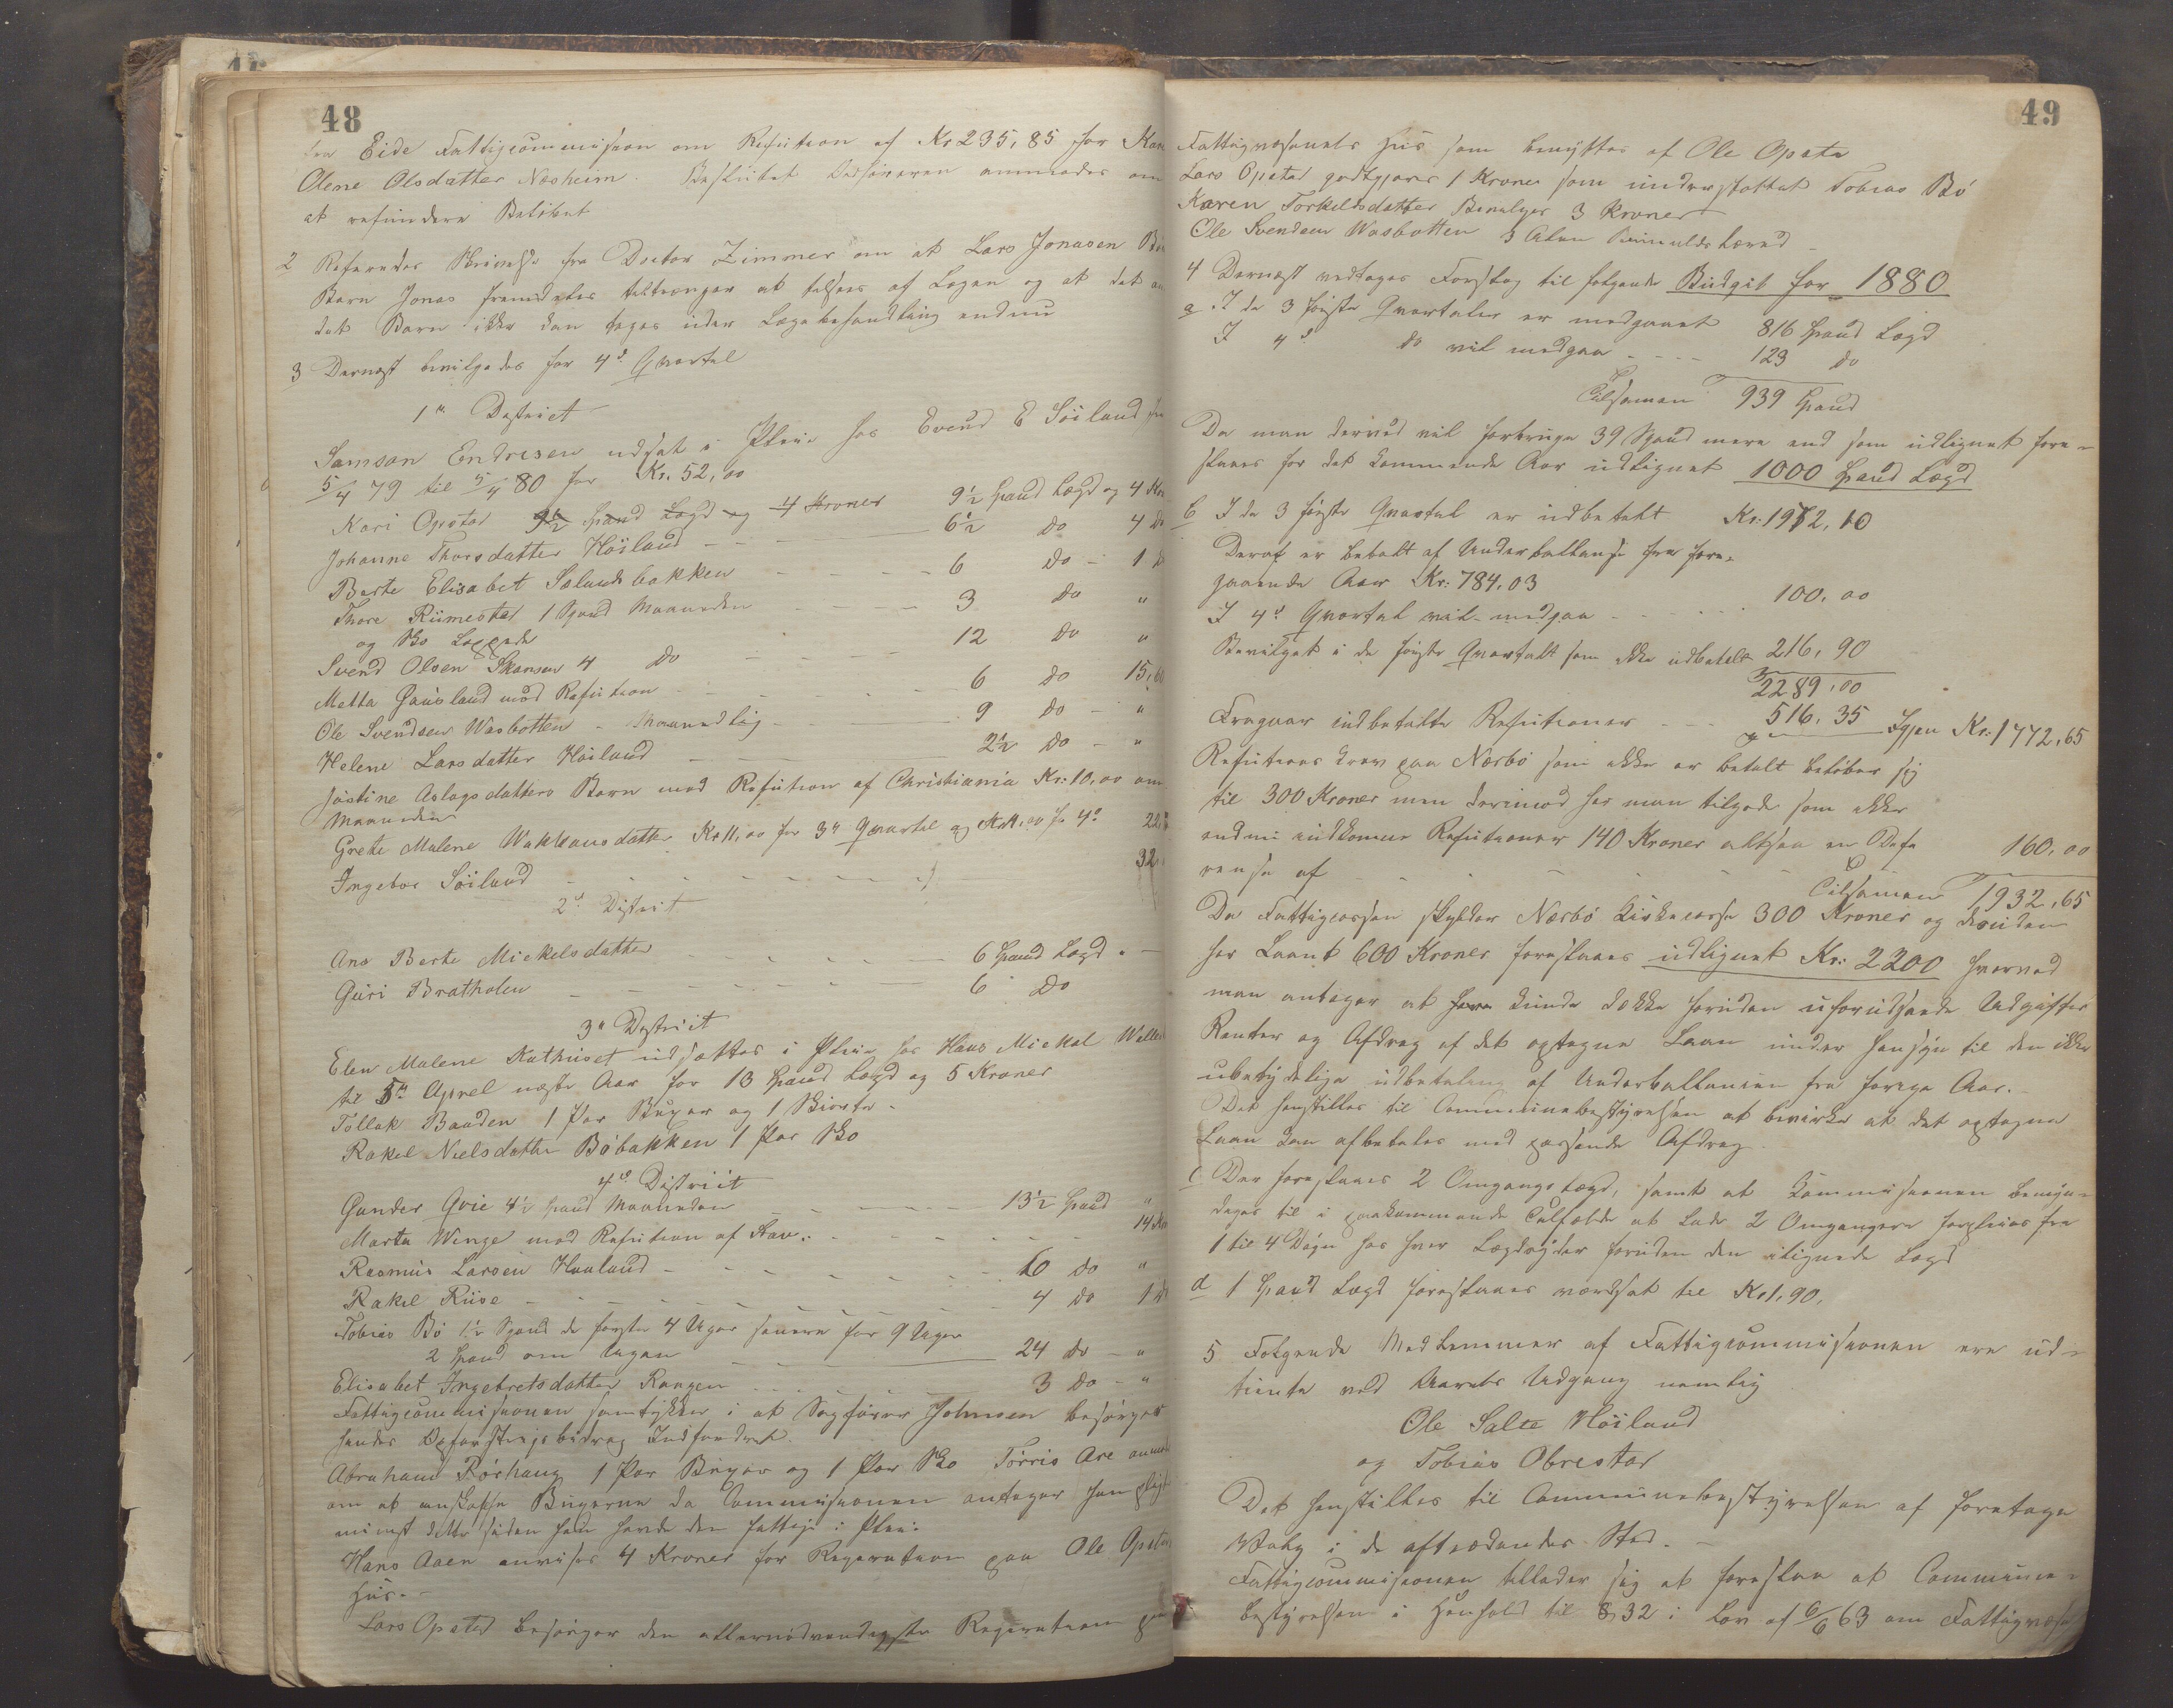 48
fra Eide Fattigcommission om Refution af Kr 235,85 for Kar
Olene Olsdatter Næsheim. Besluttet Decisionen anmodes om
at refundere Beløbet
2 Refereredes Skrivelse fra Doctor Zimmer om at Lars Jonasen
Barn Jonas fremdeles tiltrænger at tilsees af Lægen og at det
det Barn ikke kan tages under Lægebehandling endnu
3 Dernæst bevilgedes for 4de Qvartal
1ste District
Samson Endresen udsat i Pleie hos Evend E Søiland fra
5/4 79 til 5/4 80 for Kr. 52,00
Kari Opstad 9½ Spand Lægd og 4 Kroner 9½ Spand Lægd og 4 Kr
Johanne Thorsdatter Høiland 6½ do 4 do
Berte Elisabet Sælandsbakken 6 do 1 d
Thore Rümestad 1 Spand Maaneden 3 do "
og Sko
Svend Olsen Skansen 4 do 12 do "
Metta Gausland mod Refution 6 do 15,60
Ole Svendsen Wasbotten Maanedlig 9 do "
Helene Larsdatter Høiland 2½ do "
Jostine Aslagsdatters Barn mod Refution af Christiania Kr. 10,00 om
Maaneden
Grete Malene Kr 11,00 for 3die Qvartal og Kr 11,00 for 4de 22,
Ingebor Søiland 32
2det District
Ane Berte Mickelsdatter 6 Spand Lægd "
Guri Bratholen 6 Do
3die District
Elen Malene Kathuset udsættes i Pleie hos Hans Mickal
til 5te Aprel næste Aar for 13 Spand Lægd og 5 Kroner
Tollak Bauden 1 Par Buxer og 1 Skiorte
Rakel Nielsdatter Bøbakken 1 Par Sko
4de District
Gunder Qvie 4½ Spand Maaneden 13½ Spand "
Marta Winge mod Refution af Stav. 14 Kr
Rasmus Larsen Hauland 10 do "
Rakel Riise 4 do 1 d
Tobias Bø 1½ Spand de første 4 Uger senere for 9 Uger
2 Spand om Ugen 24 do "
Elisabet Ingebretsdatter Rangen 3 do "
Fattigcommissionen samtykker i at Sagfører Johnsen besørger
hendes Opfostringsbidrag Indfordret.
Abraham Rørhaug 1 Par Buxer og 1 Par Sko Tørris Are anmodes
om at anskaffe Buxerne da Commissionen antager han
mindst dette siden han havde den fattige i Pleie
Hans Aaen anvises 4 Kroner for Reparation paa Ole Opstad
Hus.
Lars Opsted besørger den allernødvendigste Reparation
49
Fattigvæsenets Hus som benyttes af Ole Opsta
Lars Opstad godtgjøres 1 Krone som understøttet Tobias Bø
Karen Torkelsdatter Bevilges 3 Kroner
Ole Svendsen Wasbotten 3 Alen Bomulds Lærred
4 Dernæst vedtages Forslag til følgende Budget for 1880
a. I de 3 første Qvartaler er medgaaet 816 Spand Lægd
I 4de do vil medgaa 123 do
Tilsamen 939 Spand
Da man derved vil forbruge 39 Spand mere end som udlignet fore-
slaaes for det kommende Aar udlignet 1000 Spand Lægd
b I de 3 første Qvartal er udbetalt Kr: 1972,10
Deraf er betalt af Underballanse fra fore-
gaaende Aar Kr: 784,03
I 4de Qvartal vil medgaa 100,00
Bevilget i de første Qvartal som ikke udbetalt 216,90
2289,00
Fragaar indbetalte Refutioner 516,35 Igjen Kr. 1772,65
Refutions krav paa Nærbø som ikke er betalt beløber sig
til 300 Kroner men derimod har man tilgode som ikke
endnu indkomne Refutioner 140 Kroner altsaa en Defe
rense af 160,00
Tilsamen 1932,65
Da Fattigcassen skylder Nærbø Kirkecasse 300 Kroner og desuden
har Laant 600 Kroner foreslaaes udlignet Kr: 2200 hvorved
man antager at kunde dække foruden uforudseede Udgifter
Renter og Afdrag af det optagne Laan under Hensyn til den ikke
ubetydelige udbetaling af Underballansen fra forrige Aar.
Det henstilles til Communebestyrelsen at bevirke at det optagne
Laan kan afbetales med passende Afdrag
c Der foreslaaes 2 Omgangslægd, samt at Kommissionen bemyn-
diges til i paakommende Tilfælde at lade 2 Omgangere forpleies fra
1 til 4 Døgn hos hver Lægdsyder foruden den ilignede Lægd
d 1 Spand Lægd foreslaaes værdsat til Kr 1,90.
5 Følgende Medlemmer af Fattigcommissionen ere ud-
tiente ved Aarets Udgang nemlig
Ole Salte Høiland
og Tobias Obrestad
Det henstilles til Communebestyrelsen at foretage
Valg i de aftrædendes Sted.
Fattigcommissionen tillader sig at foreslaa at Commune-
bestyrelsen i Henhold til § 32 i Lov af 6/6 63 om Fattigvæse